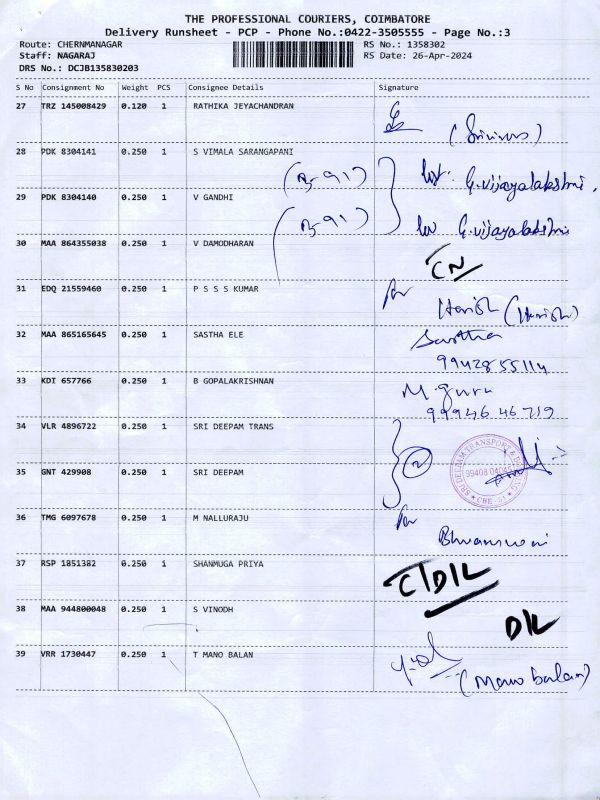 THE PROFESSIONAL COURIERS, COIMBATORE
Delivery Runsheet - PCP - Phone No.:0422-3505555 - Page No.:3
Route: CHERNMANAGAR RS No.: 1358302
Staff: NAGARAJ RS Date: 26-Apr-2024
DRS No.: DCJB135830203
S No Consignment No Weight PCS Consignee Details Signature
27 TRZ 145008429 0.120 1 RATHIKA JEYACHANDRAN
28 PDK 8304141 0.250 1 S VIMALA SARANGAPANI
G.vijayalakshmi.
29 PDK 8304140 0.250 1 V GANDHI
G.vijayalakshmi
30 MAA 864355038 0.250 1 V DAMODHARAN
CN
31 EDQ 21559460 0.250 1 P S S S KUMAR
for
Harish (Harish)
32 MAA 865165645 0.250 1 SASTHA ELE Sastha
9942855114
33 KDI 657766 0.250 1 B GOPALAKRISHNAN M.guru
9994646719
34 VLR 4896722 0.250 1 SRI DEEPAM TRANS
2
35 GNT 429908 0.250 1 SRI DEEPAM
SRI DEEPAM TRANSPORT
CBE
36 TMG 6097678 0.250 1 M NALLURAJU for
37 RSP 1851382 0.250 1 SHANMUGA PRIYA C/D/L
38 MAA 944800048 0.250 1 S VINODH
D/L
39 VRR 1730447 0.250 1 T MANO BALAN
(Mano balan)